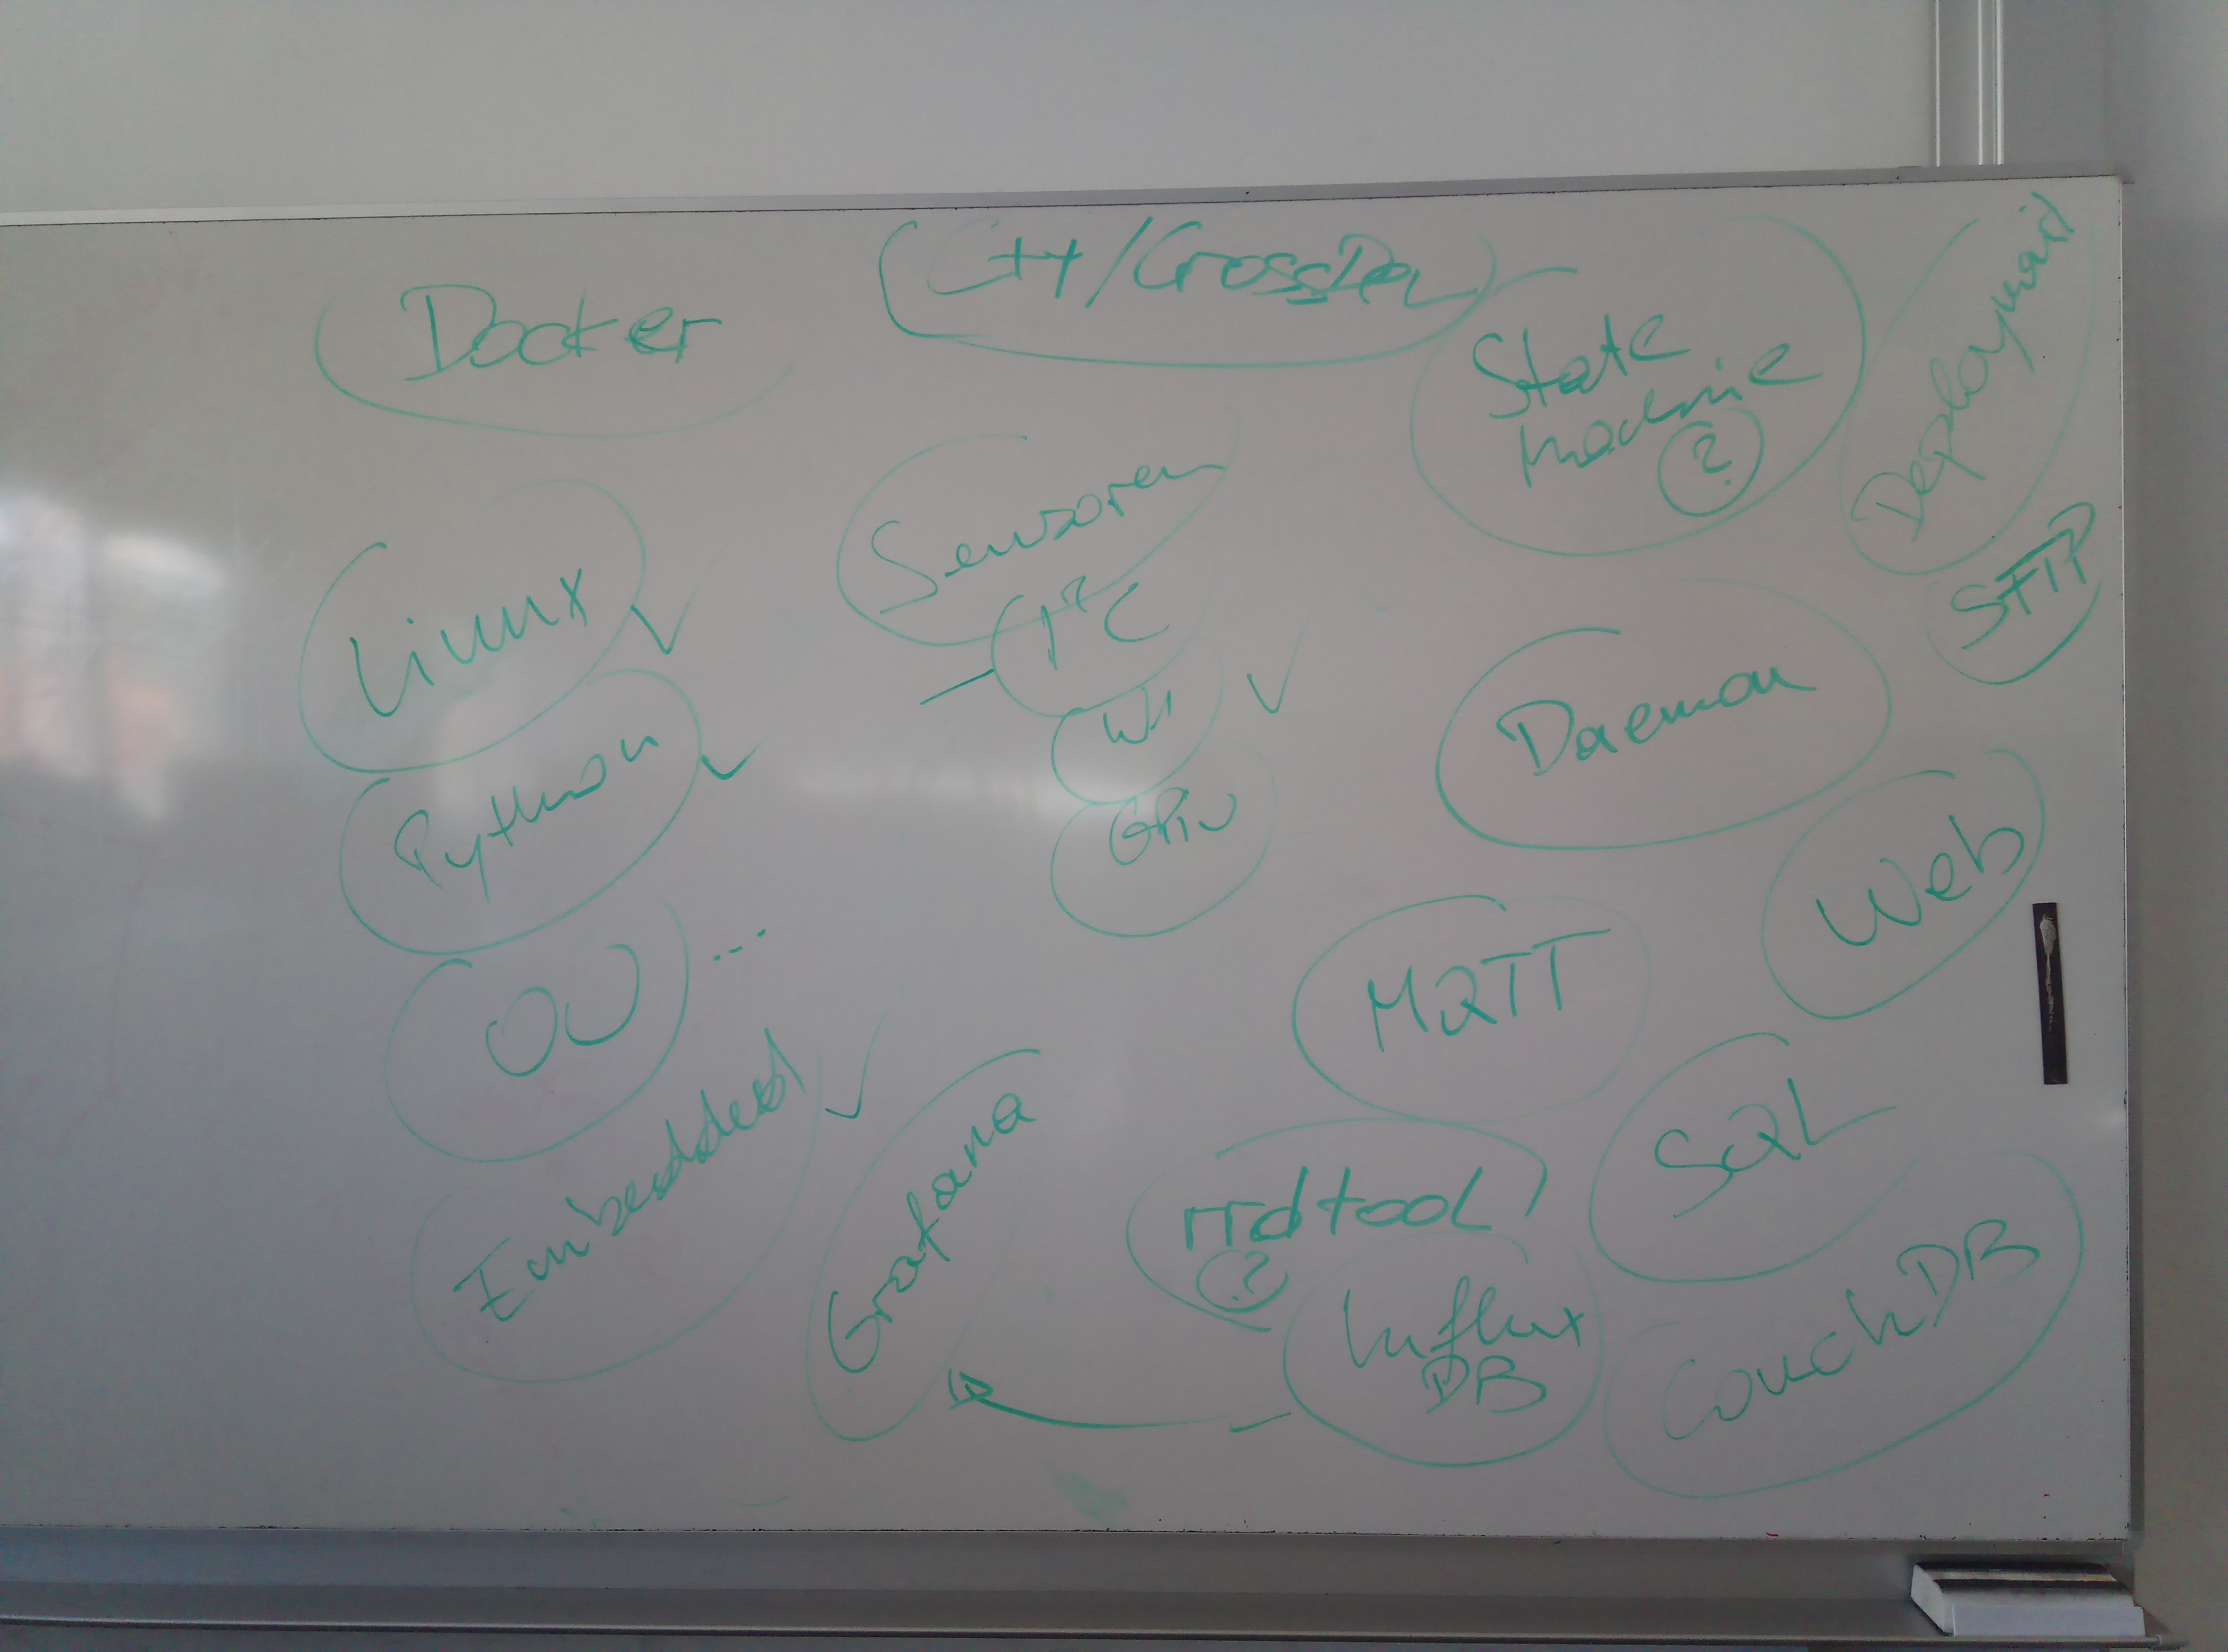 Docker
C++/CrossDev
State
Machine
?
Deployment
SFTP
Sensoren
I²C
W1
GPIO
Linux
Python
...
Embedded
Daemon
Web
MQTT
SQL
Grafana
rrdtool
?
Influx
DB
CouchDB